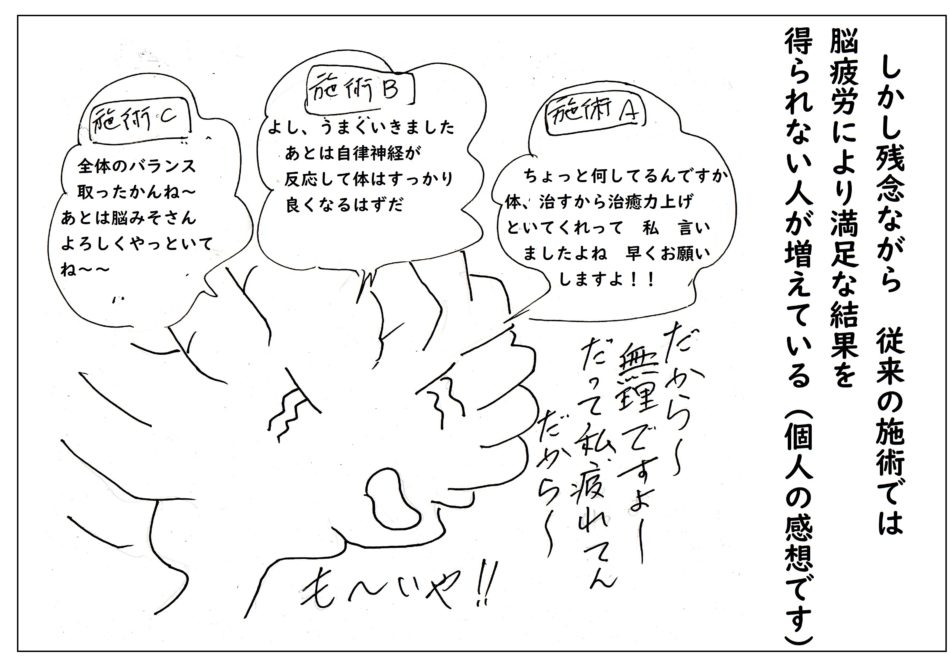 しかし残念ながら　従来の施術では
脳疲労により満足な結果を
得られない人が増えている（個人の感想です）
施術A
ちょっと何してるんですか
体、治すから治癒力上げ
といてくれって　私　言い
ましたよね　早くお願い
しますよ！！
施術B
よし、うまくいきました
あとは自律神経が
反応して体はすっかり
良くなるはずだ
施術C
全体のバランス
取ったかんね～
あとは脳みそさん
よろしくやっといて
ね～～
だから〜
無理ですよー
だって私疲れてん
だから〜
も〜いや!!